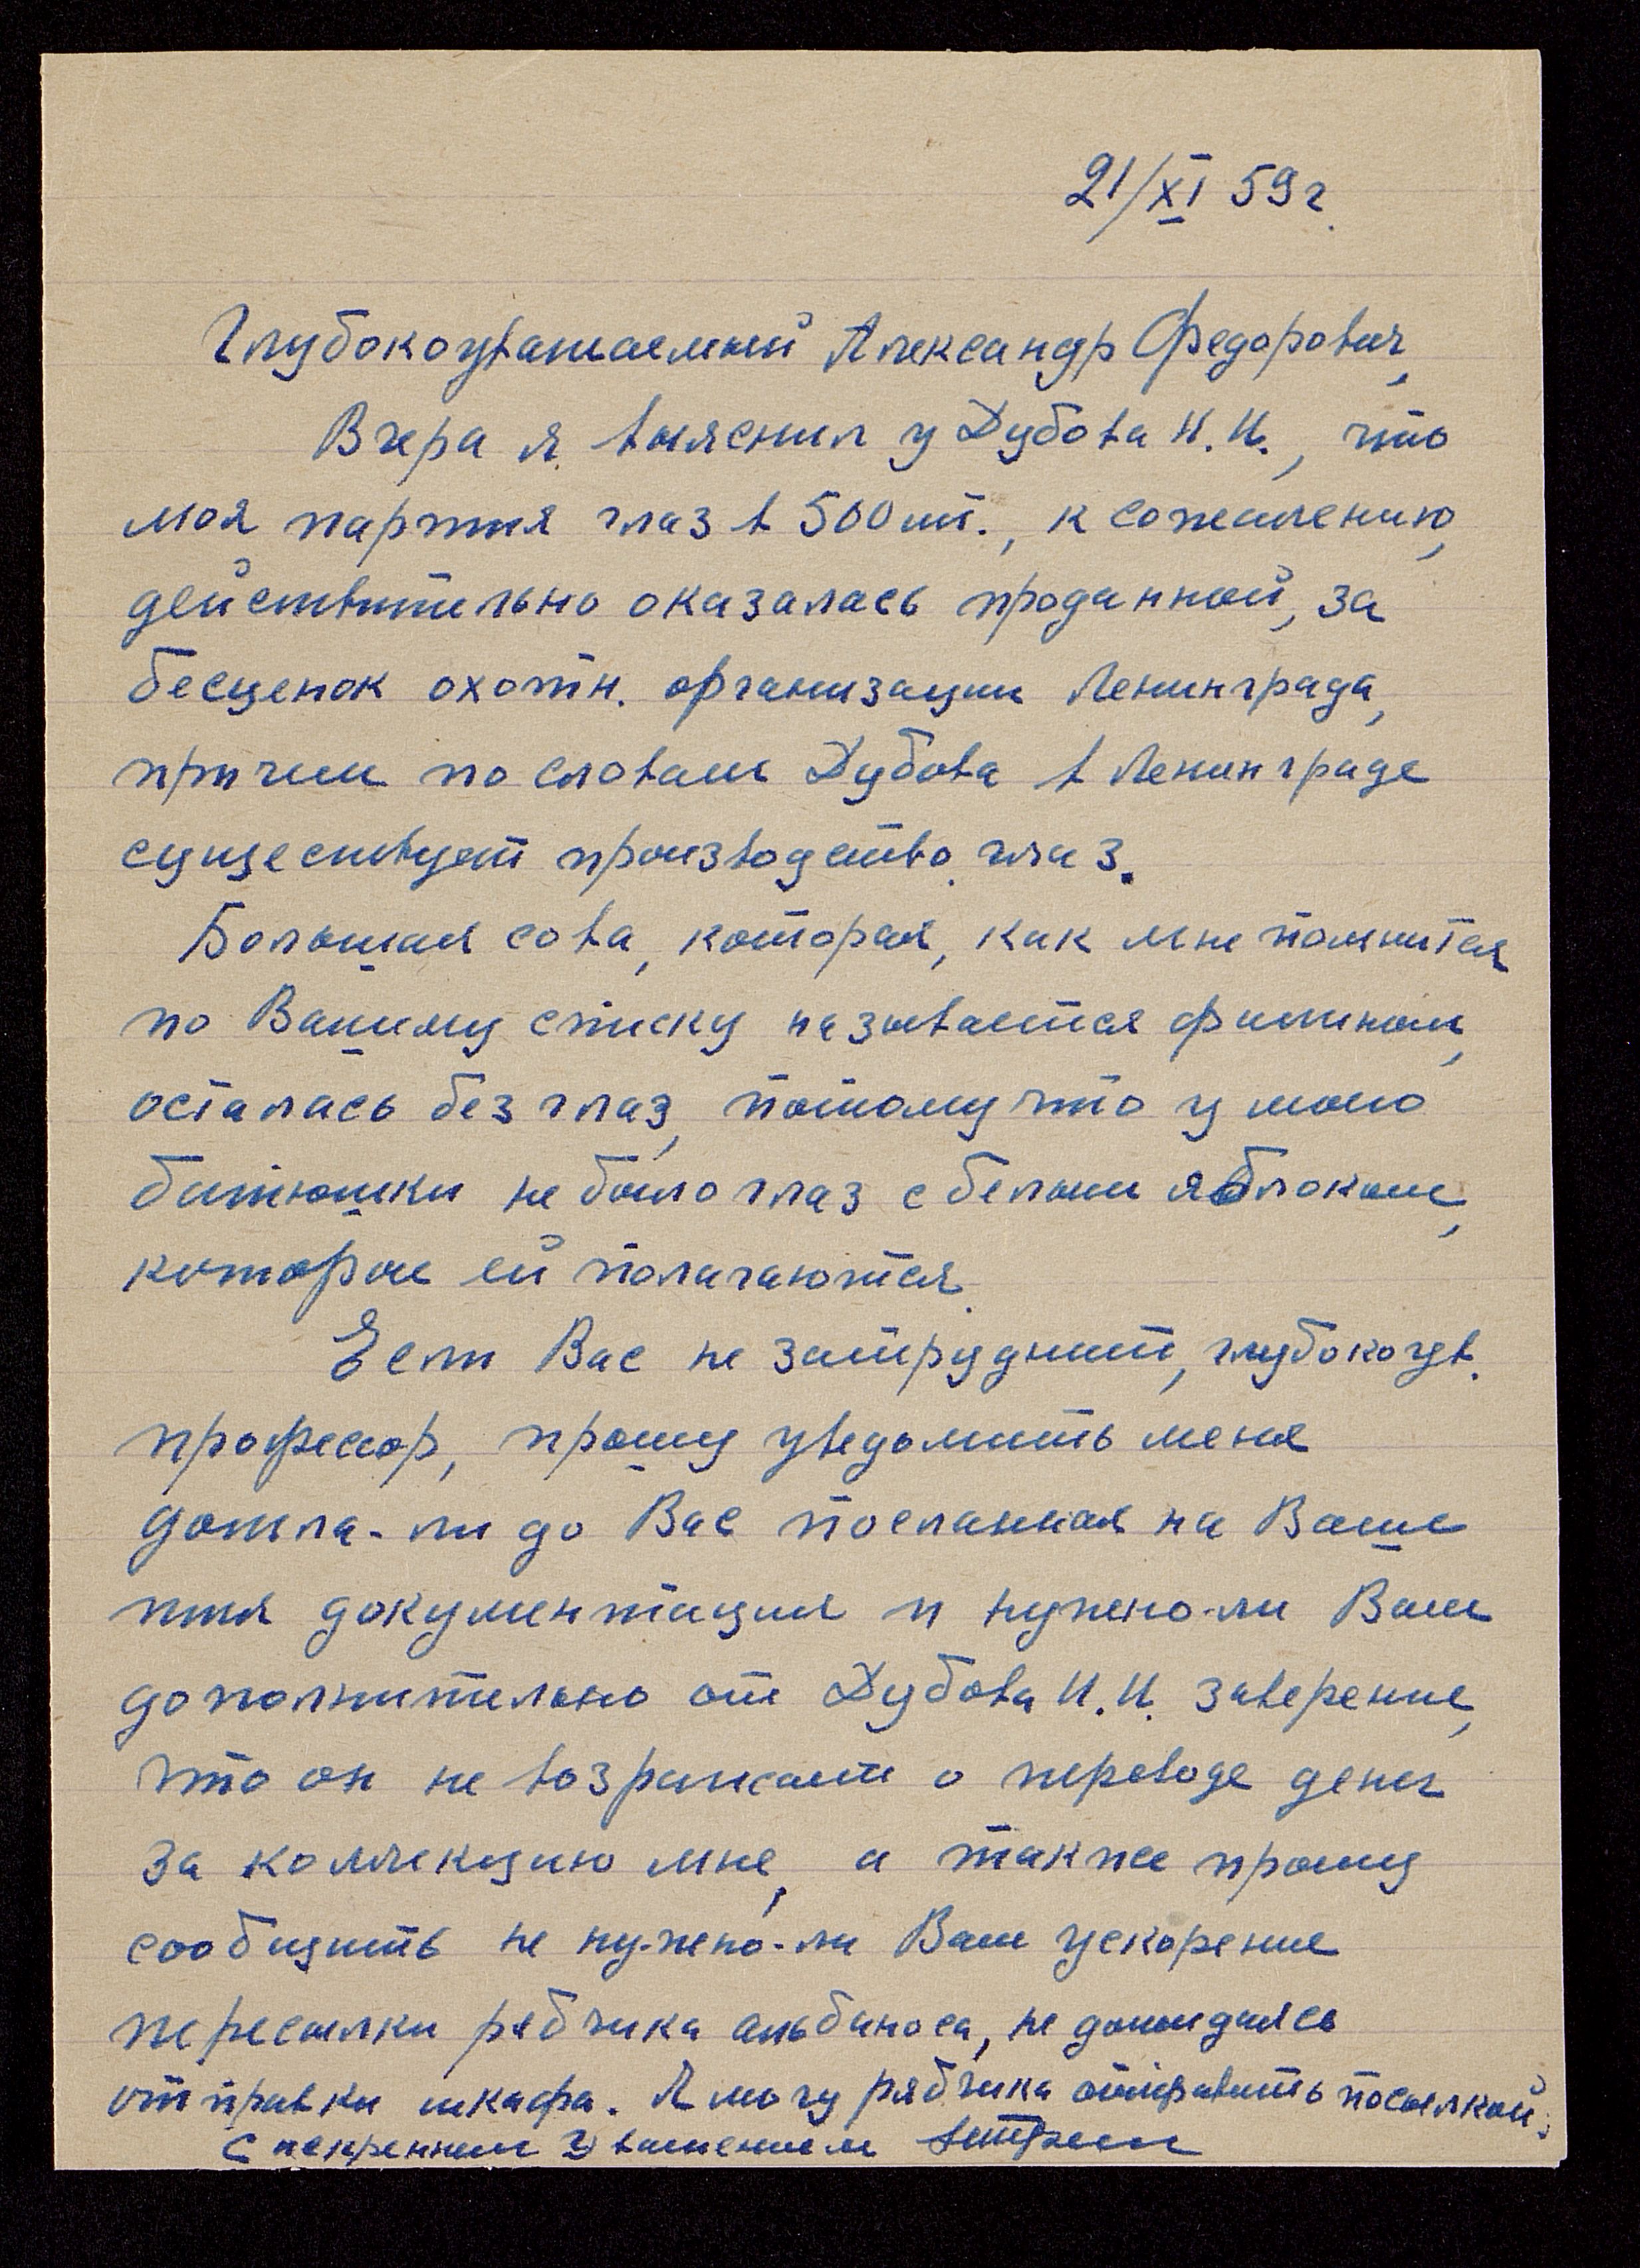 21/XI 59 г.
Глубокоуважаемый Александр Федорович,
Вчера я выяснил у Дубова И.И., что
моя партия глаз в 500 шт., к сожалению,
действительно оказалась проданной, за
бесценок охотн. организации Ленинграда,
причем по словам Дубова в Ленинграде
существует производство глаз.
Большая сова, которая, как мне помнится
по Вашему списку называется филином,
осталась без глаз, потому что у моего
батюшки не было глаз с белым яблоком,
которые ей полагаются.
Если Вас не затруднит, глубокоув.
профессор, прошу уведомить меня
дошла-ли до Вас посланная на Ваше
имя документация и нужно-ли Вам
дополнительно от Дубова И.И. заверение,
что он не возражает о переводе денег
за коллекцию мне, а также прошу
сообщить не нужно-ли Вам ускорение
пересылки рябчика альбиноса, не дожидаясь
отправки шкафа. Я могу рябчика отправить посылкой.
С искренним уважением